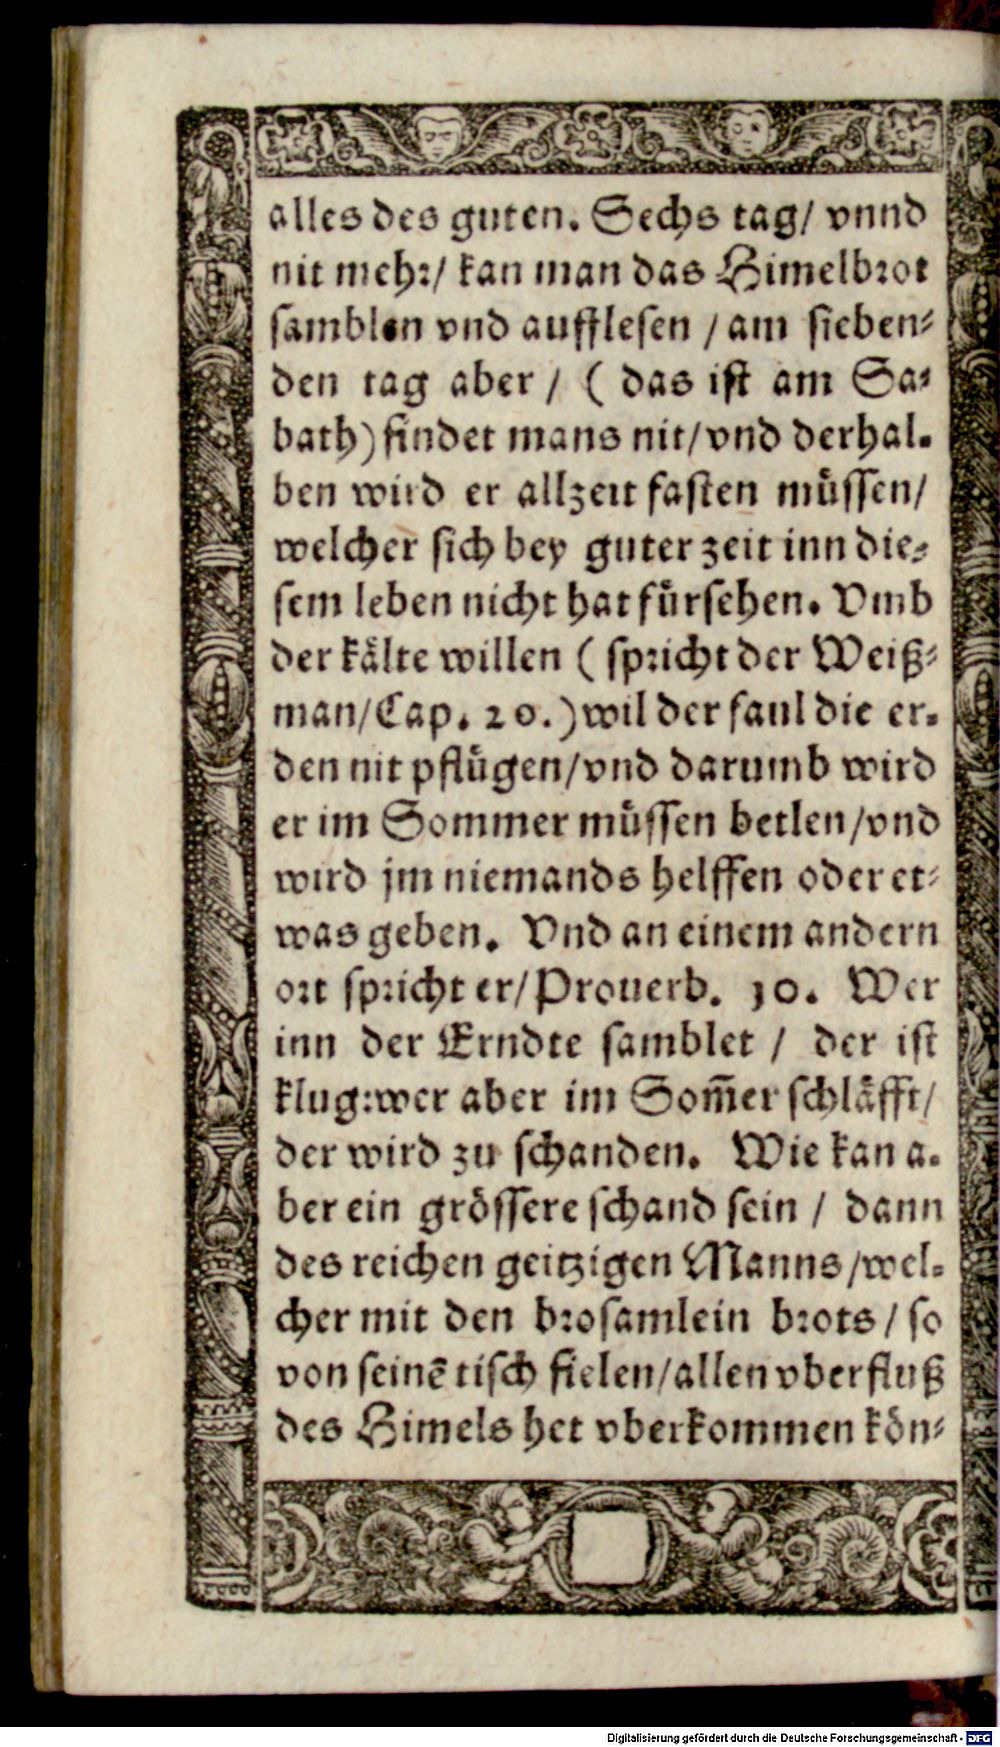 alles des guten. Sechs tag/ vnnd
nit mehr/ kan man das Himelbrot
samblen vnd aufflesen / am sieben-
den tag aber / ( das ist am Sa-
bath) findet mans nit/ vnd derhal-
ben wird er allzeit fasten müssen/
welcher sich bey guter zeit inn die-
sem leben nicht hat fürsehen. Vmb
der kälte willen ( spricht der Weiß-
man/ Cap. 20.) wil der faul die er-
den nit pflügen/ vnd darumb wird
er im Sommer müssen betlen/ vnd
wird jm niemands helffen oder et-
was geben. Vnd an einem andern
ort spricht er/ Prouerb. 10. Wer
inn der Erndte samblet / der ist
klug: wer aber im Som̃er schläfft/
der wird zu schanden. Wie kan a-
ber ein grössere schand sein / dann
des reichen geitzigen Manns/ wel-
cher mit den brosamlein brots / so
von seinē tisch fielen/ allen vberfluß
des Himels het vberkommen kön-
Digitalisierung gefördert durch die Deutsche Forschungsgemeinschaft - DFG